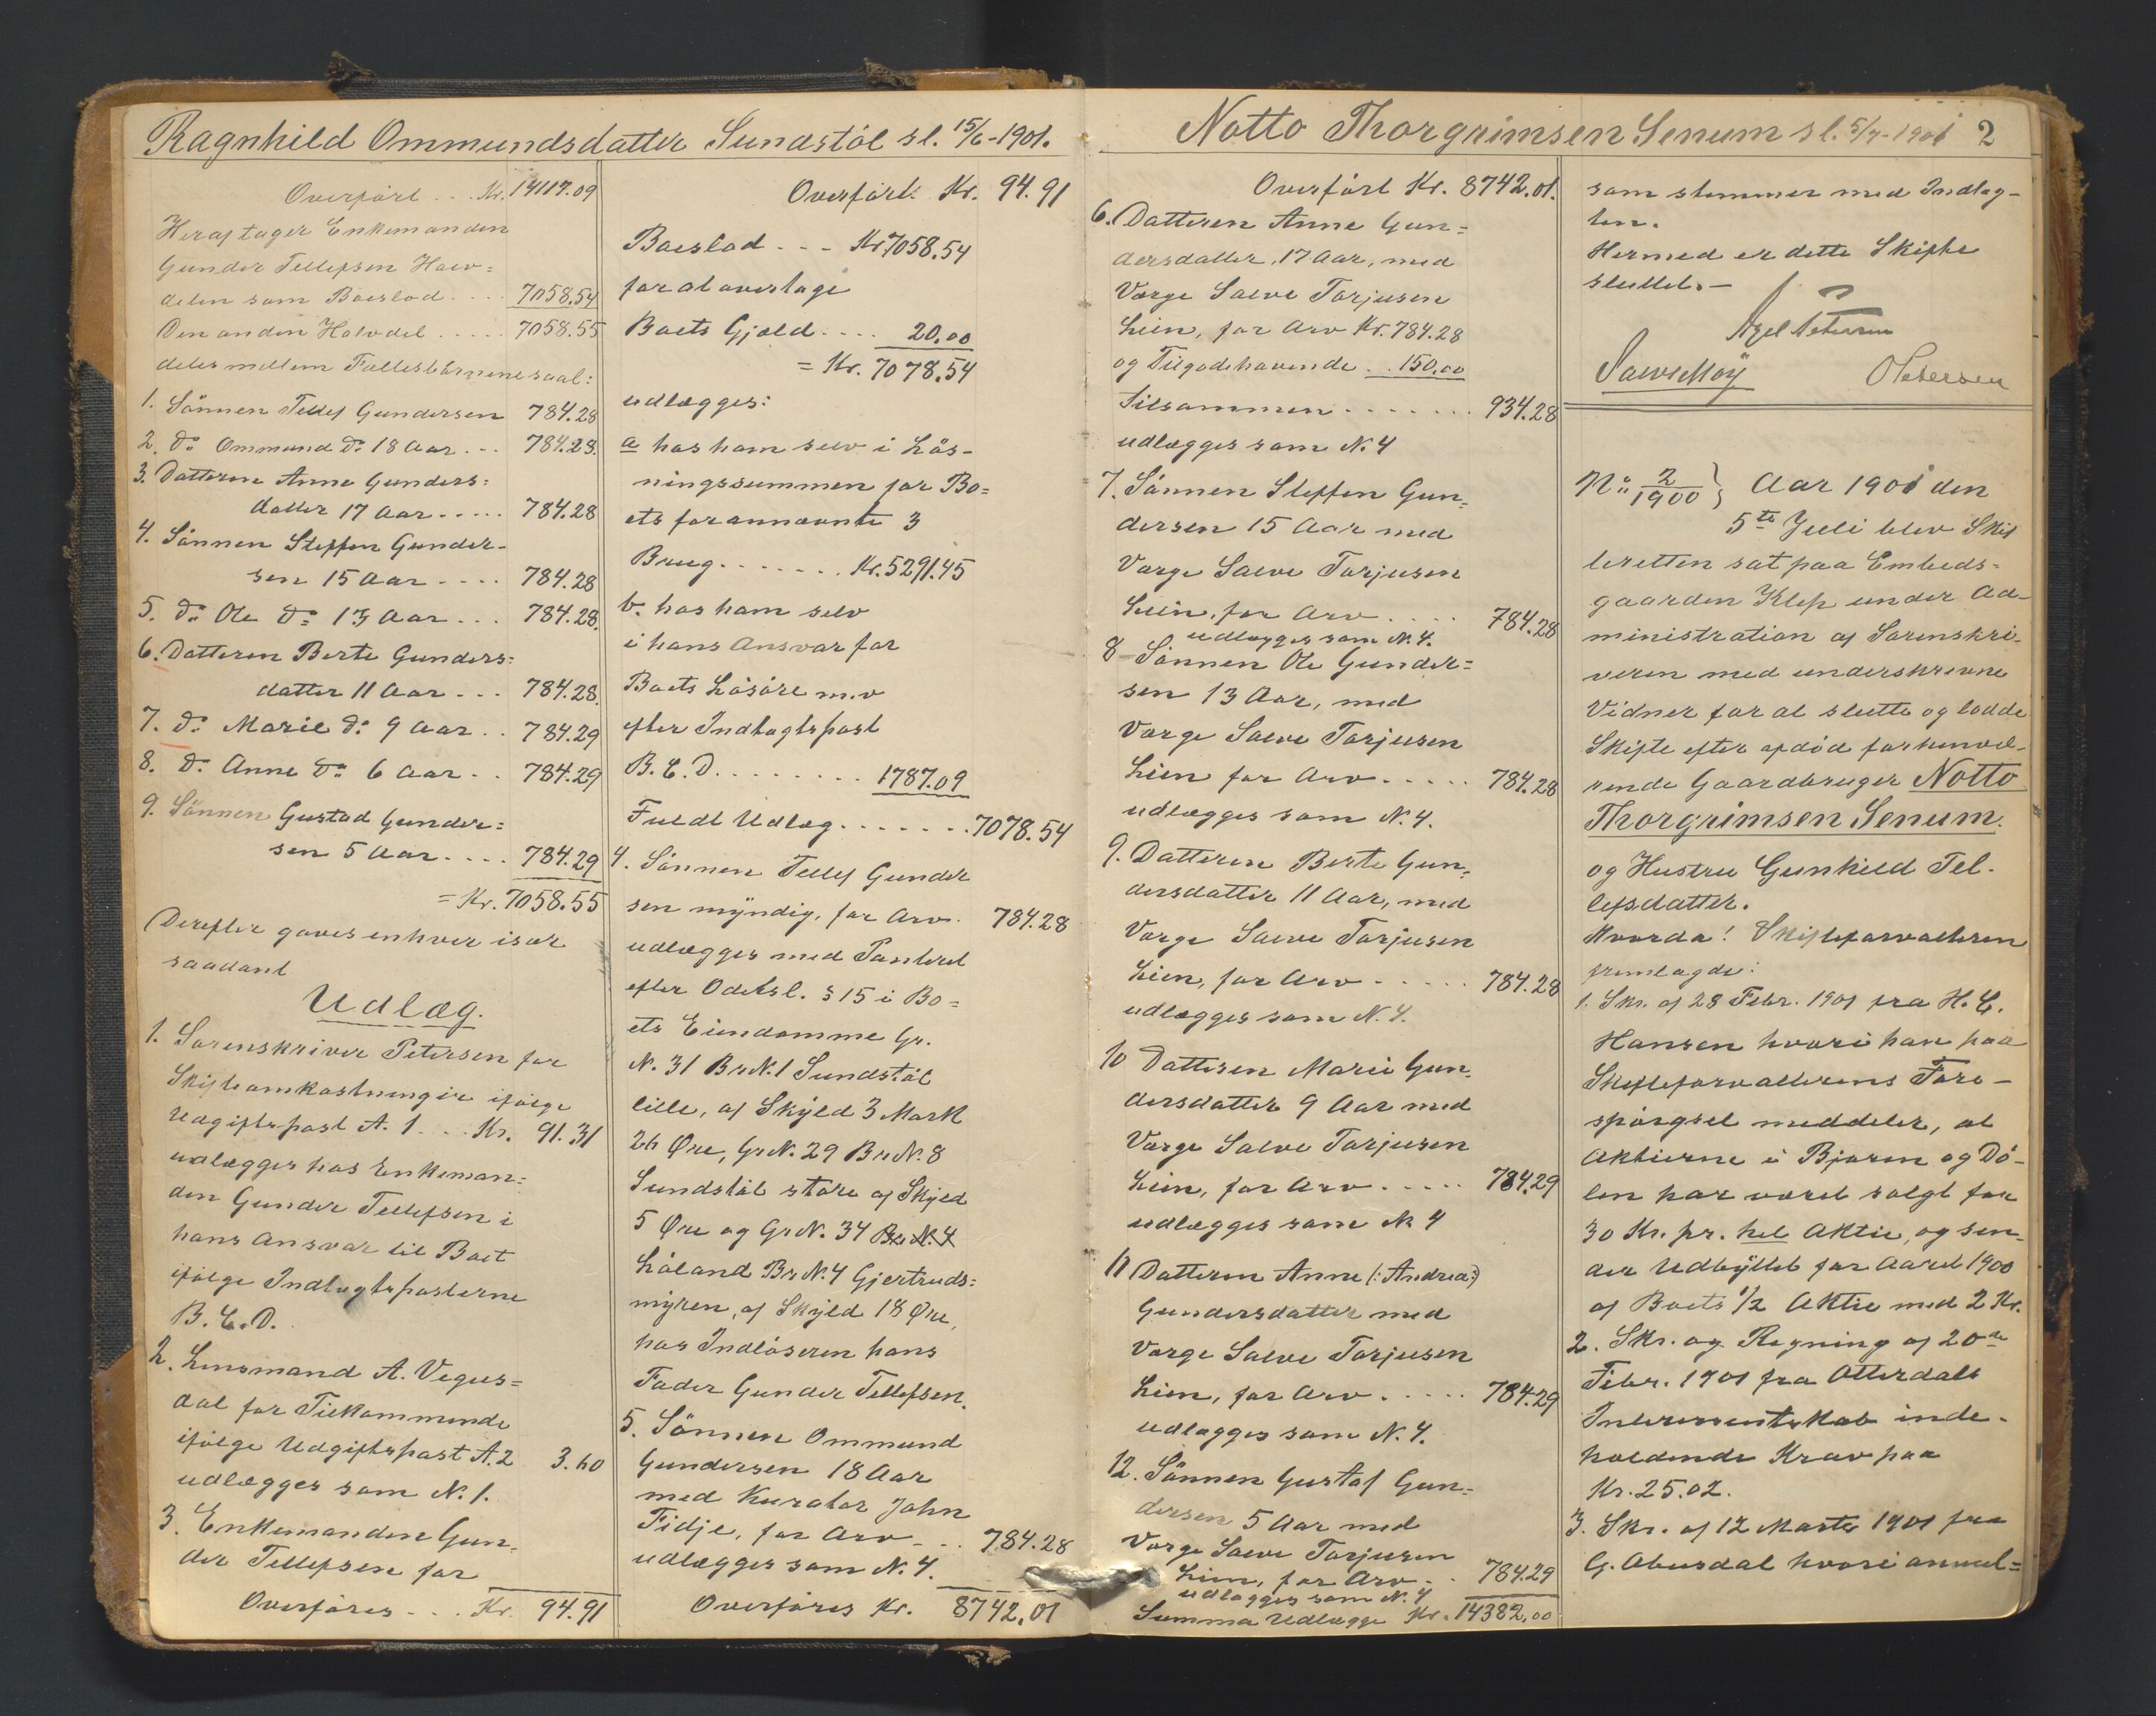 Ragnhild Ommundsdatter Sundstöl sl. 15/6-1901.
Overfört . . . Kr. 14117.09
Heraf tager Enkemanden
Gunder Tellefsen Halv=
delen som Boeslod . . . . 7058.54
Den anden Halvdel . . . . . 7058.55
deles mellem Fællesbörnene saal:
1. Sönnen Tellef Gundersen 784.28
2. do Ommund do 18 Aar . . . 784.28.
3. Datteren Anne Gunders=
datter 17 Aar . . . . . 784.28
4. Sönnen Steffen Gunder-
sen 15 Aar . . . . 784.28
5. do Ole do 13 Aar . . . 784.28.
6. Datteren Berte Gunders=
datter 11 Aar . . . 784.28.
7. do Marie do 9 Aar . . 784.29
8. do Anne do 6 Aar . . 784.29
9. Sönnen Gustad Gunder=
sen 5 Aar . . . . 784.29
= Kr. 7058.55
Derefter gaves enhver især
saadant
Udlæg.
1. Sorenskriver Petersen for
Skifteomkostninger ifölge
Udgiftspost A. 1 . . . Kr. 91.31
udlægges hos Enkeman=
den Gunder Tellefsen i
hans Ansvar til Boet
ifölge Indtægtsposterne
B. C. D.
2. Lensmand A. Vegus=
dal for Tilkommende
ifölge Udgiftspost A. 2 3.60
udlægges som N. 1.
3. Enkemanden Gun=
der Tellefsen for
Overföres . . . Kr. 94.91
Overfört Kr. 94.91
Boeslod - - - Kr 7058.54
for at overtage
Boets Gjæld . . . . 20.00
= Kr. 7078.54
udlægges:
a hos ham selv i Lös-
ningssummen for Bo=
ets forannævnte 3
Brug . . . . . . . Kr. 5291.45
b. hos ham selv
i hans Ansvar for
Boets Lösöre m.v
efter Indtægtspost
B. C. D. . . . . . . . . 1787.09
Fuldt Udlæg . . . . . . . 7078.54
4. Sönnen Tellef Gunder
sen myndig, for Arv. 784.28
udlægges med Panteret
efter Odelsl. § 15 i Bo=
ets Eiendomme Gr.
N. 31 Br N. 1 Sundstöl
lille, af Skyld 3 Mark
26 Øre, Gr N. 29 Br N. 8
Sundstöl store af Skyld
5 Øre og Gr N. 34 Br N. 4
Löland Br N. 4 Gjertruds=
myren, af Skyld 18 Øre,
hos Indlöseren hans
Fader Gunder Tellefsen.
5. Sönnen Ommund
Gundersen 18 Aar
med Kurator John
Fidje, for Arv . . . 784.28
udlægges som N. 4.
Overföres Kr. 8742.01
Notto Thorgrimsen Senum sl. 5/7-1901 2
Overfört Kr. 8742.01.
6. Datteren Anne Gun=
dersdatter, 17 Aar, med
Værge Salve Torjusen
Lien, for Arv Kr. 784.28
og Tilgodehavende . . 150.00
Tilsammen . . . . . . . 934.28
udlægges som N. 4
7. Sönnen Steffen Gun=
dersen 15 Aar med
Værge Salve Torjusen
Lien, for Arv . . . . 784.28
udlægges som N. 4.
8 Sönnen Ole Gunder=
sen 13 Aar, med
Værge Salve Torjusen
Lien for Arv . . . . . 784.28
udlægges som N. 4.
9. Datteren Berte Gun=
dersdatter 11 Aar, med
Værge Salve Torjusen
Lien, for Arv . . . . . 784.28
udlægges som N. 4.
10 Datteren Marie Gun=
dersdatter 9 Aar med
Værge Salve Torjusen
Lien, for Arv . . . . . 784.29
udlægges som N 4
11 Datteren Anne (: Andrea:)
Gundersdatter med
Værge Salve Torjusen
Lien, for Arv . . . . . 784.29
udlægges som N. 4.
12. Sönnen Gustaf Gun=
dersen 5 Aar med
Værge Salve Torjusen
Lien, for Arv . . 784.29
udlægges som N. 4
Summa Udlægge Kr. 14382.00
som stemmer med Indtæg-
ten.
Hermed er dette Skifte
sluttet. —
Axel Petersen
Salve Moy OPetersen
No 2/1900 } Aar 1901 den
5te Juli blev Skif
teretten sat paa Embeds-
gaarden Klep under Ad-
ministration af Sorenskri-
veren med underskrevne
Vidner for at slutte og lodde
Skifte efter afdöd forhenvæ-
rende Gaardbruger Notto
Thorgrimsen Senum.
og Hustru Gunhild Tel-
lefsdatter.
Hvorda! Skifteforvalteren
fremlagde:
1. Skr. af 28 Febr. 1901 fra H. C.
Hansen hvori han paa
Skifteforvalterens Fore-
spörgsel meddeler, at
Aktierne i Bjoren og Dö-
len har været solgt for
30 Kr. pr. hel Aktie, og sen-
der Udbyttet for Aaret 1900
af Boets 1/2 Aktie med 2 Kr.
2. Skr. og Regning af 20de
Febr. 1901 fra Otterdals
Interessentskab inde-
holdende Krav paa
Kr. 25.02.
3. Skr. af 12 Marts 1901 fra
G. Abusdal hvori anmel=